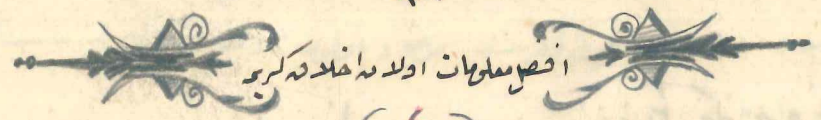 افضل معلومات اولان اخلاق كريمه